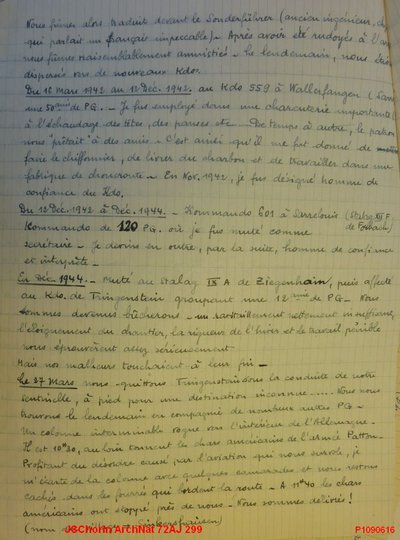 Nous fûmes alors traduit devant le Sonderführer (ancien ingénieur,
qui parlait un français impeccable) - Après avoir été rudoyés à l'
nous fûmes vraisemblablement amnistiés - Le lendemain, nous étions
dispersés vers de nouveaux Kdo.
Du 16 Mars 1942 au 12 Déc. 1942. au Kdo 559 à Wallerfangen (
une 50aine de P.G. - Je fus employé dans une charcuterie importante
à l'échaudage des têtes, des panses etc - De temps à autre, le patron
nous prêtait à des amis - C'est ainsi qu'il me fut donné de
faire le chiffonnier, de livrer du charbon et de travailler dans une
fabrique de choucroute - En Nov. 1942, je fus désigné homme de
confiance du Kdo.
Du 12 Déc. 1942 à Déc. 1944. - Kommando 601 à Sarrelouis (Stalag XII F
Kommando de 120 P.G. où je fus muté comme de Forbach)
secrétaire - Je devins en outre, par la suite, homme de confiance
et interprète -
En Déc. 1944. - Muté au Stalag IX A de Ziegenhain, puis affecté
au Kdo. de Trengenstein groupant une 12aine de P.G - Nous
sommes devenus bûcherons - un ravitaillement nettement insuffisant,
l'éloignement du chantier, la rigueur de l'hiver et le travail pénible
nous éprouvèrent assez sérieusement
Mais nos malheurs touchaient à leur fin -
Le 27 Mars nous quittons Trengenstein sous la conduite de notre
sentinelle, à pied pour une destination inconnue ..... Nous nous
trouvons le lendemain en compagnie de nombreux autres P.G -
Un colonne interminable vogue vers l'intérieur de l'Allemagne -
Il est 10h30, au loin tonnent les chars américains de l'armée Patton -
Profitant du désordre causé par l'aviation qui nous survole, je
m'écarte de la colonne avec quelques camarades et nous restons
cachés dans les fourrés qui bordent la route - A 11h40 les chars
américains ont stoppé près de nous - Nous sommes délivrés !
(nom
JGChorin ArchNat 72AJ 299
P1090616